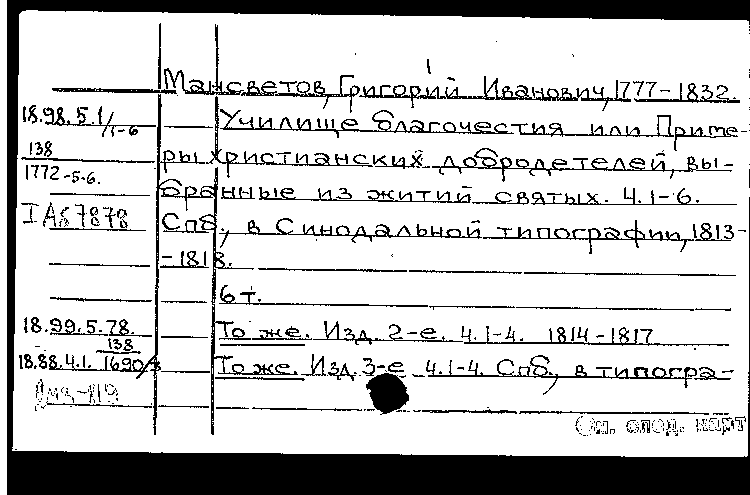 Мансветов, Григорий Иванович, 1777-1832.
18.98.5.1/1-6 Училище благочестия или Приме-
138 ры христианских добродетелей, вы-
1772-5-6. бранные из житий святых. Ч. 1-6.
I A57878 Спб., в Синодальной типографии, 1813-
-1818.
6 т.
18.99.5.78. То же. Изд. 2-е. Ч. 1-4. 1814-1817
138
18.88.4.1. То же. Изд. 3-е Ч. 1-4. Спб., в типогра-
См. след. карт